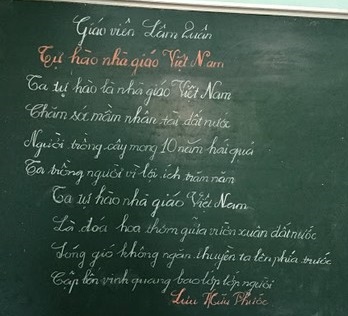 Giáo viên Lâm Quân
Tự hào nhà giáo Việt Nam
Ta tự hào là nhà giáo Việt Nam
Chăm sá mầm nhân tài đất nước
Người trồng cây mong 10 năm hái quả
Ta trồng người vì lợi ích trăm năm
Ta tự hào nhà giáo Việt Nam
Là đoá hoa thơm giữa viên xuân đất nước
Sóng gió không ngăn thuyền ta lên phía trước
Cập bến vinh quang bao lớp lớp người
Lưu Hữu Phước